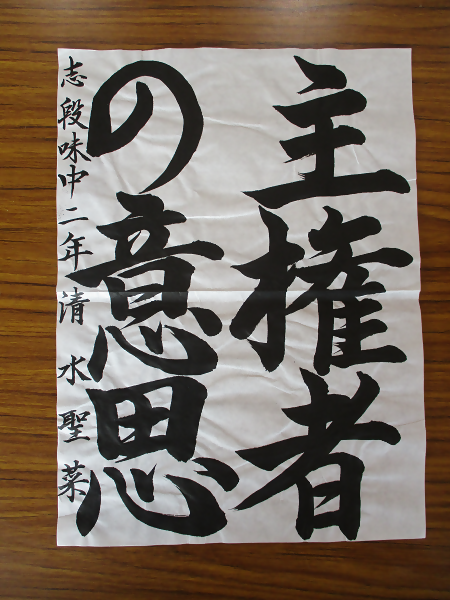 主権者
の意思
志段味中二年清水聖菜